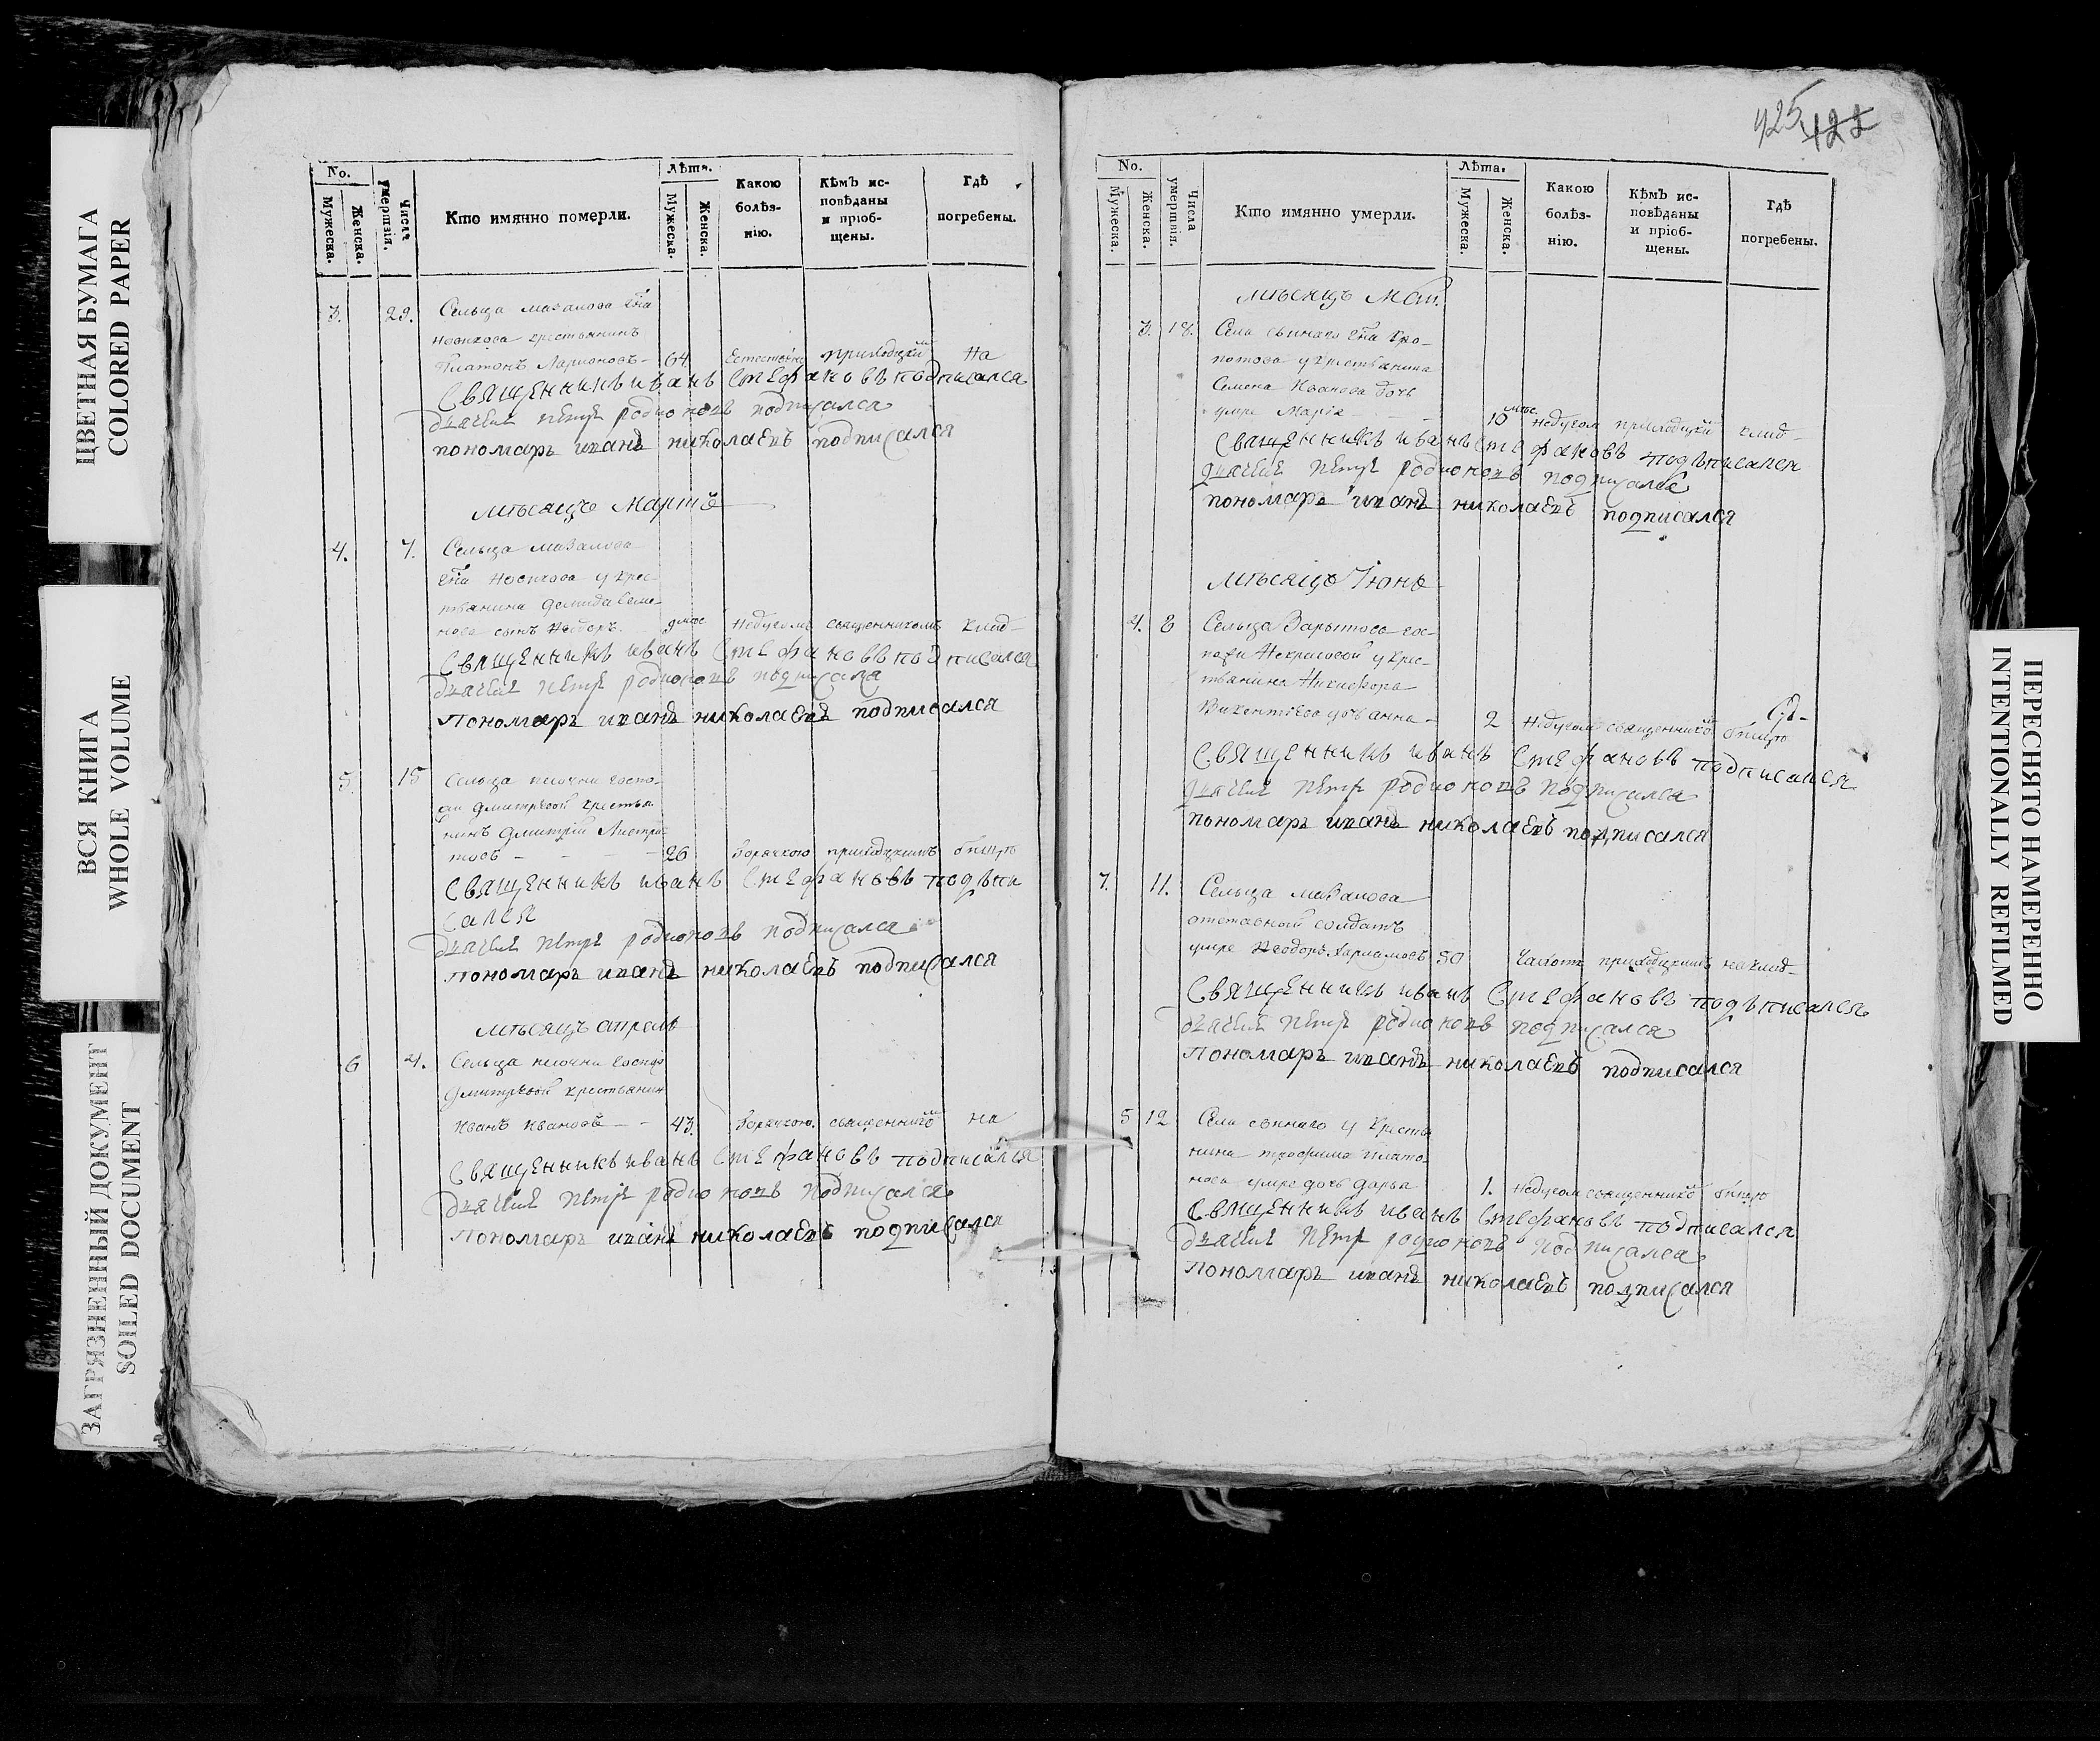 ЦВЕТНАЯ БУМАГА
COLORED PAPER
ВСЯ КНИГА
WHOLE VOLUME
ЗАГРЯЗНЕННЫЙ ДОКУМЕНТ
SOILED DOCUMENT
No.
Мужеска.
Женска.
Числа умертвія.
Кто имянно померли.
Лѣта.
Мужеска.
Женска.
Какою болѣз-
нію.
Кѣмъ ис-
повѣданы
и пріоб-
щены.
Гдѣ
погребены.
3. 29. Сельца мазалова Гна
новикова крестьянинъ
Платонъ Ларионовъ 64. Естествен приходским На
Священникъ иванъ Стефановъ подписался
дьячекъ петръ родионовъ подписался
пономарь иванъ николаевъ подписался
мѣсяцъ Мартъ
4. 7. Сельца мазалова
Гна Новикова у крес-
тьянина демида Семе-
нова сынъ Феодоръ недугомъ священникомъ клад-
Священникъ иванъ Стефановъ подписался
дьячекъ петръ родионовъ подписался
Пономарь иванъ николаевъ подписался
5. 15 Сельца госпо-
жи дмитревой крестья
нинъ дмитрій
26 Горячкою приходскимъ
Священникъ иванъ Стефановъ подъпи
сался
дьячекъ петръ родионовъ подписался
Пономарь иванъ николаевъ подписался
мѣсяцъ апрель
6 4. Сельца госпож
дмитревой крестьянин
Иванъ Ивановъ 43. Горячкою. священником на
Священникъ иванъ Стефановъ подписался
дьячекъ петръ родионовъ подписался
Пономарь иванъ николаевъ подписался
425 422
No.
Мужеска.
Женска.
Числа умертвія.
Кто имянно умерли.
Лѣта.
Мужеска.
Женска.
Какою
болѣз-
нію.
Кѣмъ ис-
повѣданы
и пріоб-
щены.
Гдѣ
погребены.
мѣсяцъ Май.
3. 18. Села Гна Кро-
потова у крестьянина
Семена Иванова дочь
умре Марія 10 мѣс недугом приходским клад-
Священникъ иванъ Стефановъ подъписался
дьячекъ петръ родионовъ подписался
пономарь иванъ николаевъ подписался
мѣсяцъ Іюнь
4. 8 Сельца Зарытова гос-
пожи Некрасовой у крес-
тьянина Никифора
Викентіева дочь анна 2 Недугомъ священником
Священникъ иванъ Стефановъ подписался
дьячекъ петръ родионовъ подписался
пономарь иванъ николаевъ подписался
7. 11. Сельца мазалова
отставный солдатъ
умре Феодоръ 50 приходскимъ на клад-
Священникъ иванъ Стефановъ подъписался
дьячекъ петръ родионовъ подписался
Пономарь иванъ николаевъ подписался
5 12 Села у Крестья
нина трофима Плато-
нова умре дочь дарья 1. недугом священником
Священникъ иванъ Стефановъ подписался
дьячекъ Петръ родионовъ подписался
Пономарь иванъ николаевъ подписался
ПЕРЕСНЯТО НАМЕРЕННО
INTENTIONALLY REFILMED